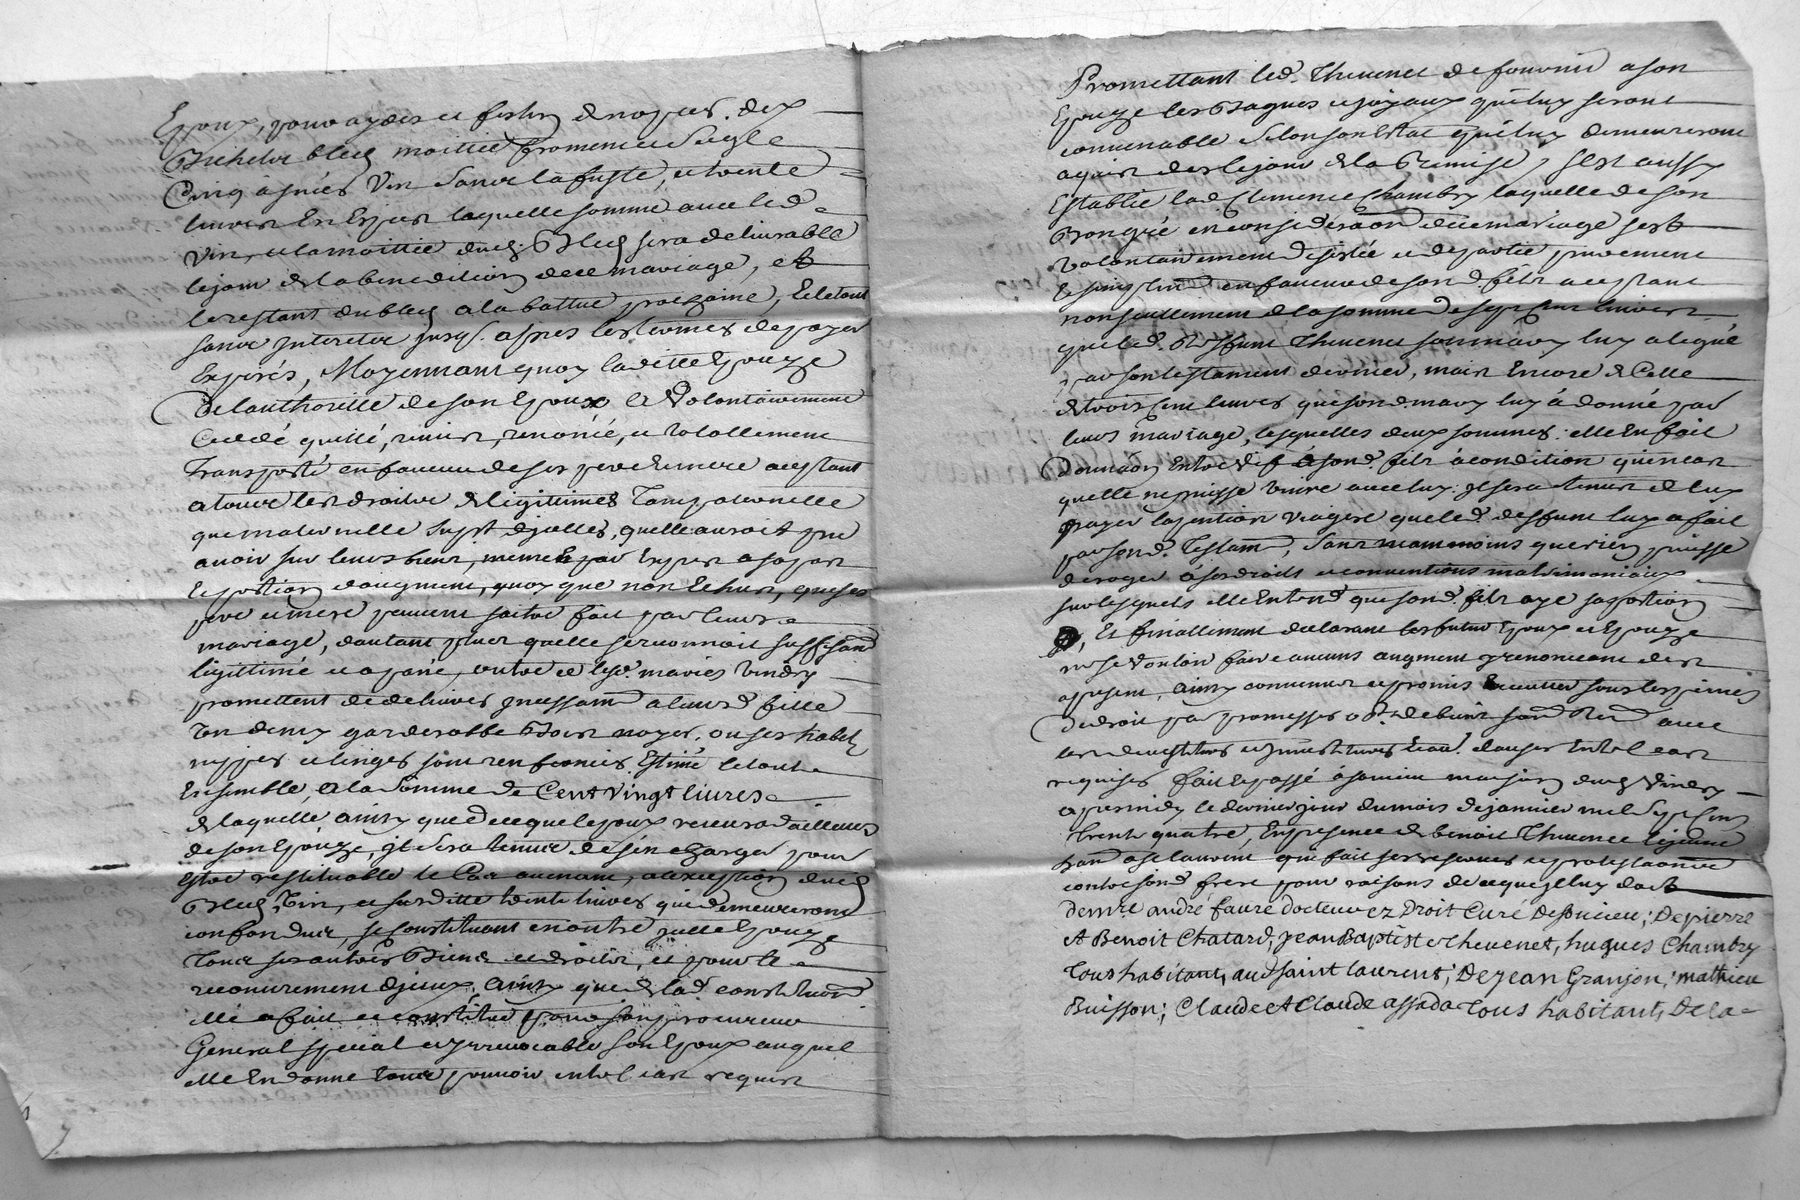 Epoux, pour aydes et festin de nopces, dix
Bichets bled moittié froment et seigle
Cinq asnées vin sans la fuste, et trente
livres En Espèces laquelle somme avec led.
vin, et la moittié dud. Bled sera delivrable
le jour de la benediction de ce mariage, et
le restant du bled a la battue prochaine, Et le tout
sans Interets jusq. apres les termes de payer
Expirés, Moyennant quoy laditte Epouze
de l'authorité de son Epoux a volontairement
Ceddé, quitté, remis, renoncé, et totallement
Transporté en faveur de ses pere et mere aceptant
a tous les droits de legittimes Tant paternelle
que maternelle Supt. d'jcelles, quelle auroit pue
avoir sur leurs biens, mesme par Exprès a sa part
Et portion d'augment, quoy que non Echus, que ses
pere et mere peuvent s'estre fait par leurs
mariage, d'autant plus quelle se reconnoit suffisam.
legittimé et apané, outre ce lesd. mariés Vindry
promettent de delivrer Incessam. a leurd. fille
Un demy garderobbe Bois noyer, ou ses habits,
nippes et linges sont renfermés Estimé le tout
Ensemble, a la Somme de Cent vingt livres
de laquelle, ainsy que de ce que l'epoux recevra d'ailleurs
de son Epouze, jl sera tenu de s'en charger pour
Estre restituable le Cas avenant, a l'exception dud.
Bled, Vin, et susditte trente livres qui demeureront
confondus, se constituant en outre jcelle Epouze
Tous ses autres Biens et droits, et pour le
recouvrement d'jceux, ainsy que de lad. constitution
elle a fait et constitué pour son procureur
General special et jrrevocable son Epoux auquel
elle En donne tout pouvoir en tel cas requis
Promettant led. Thevenet de fournir a son
Epouze les Bagues et joyaux qui luy seront
convenable selon son Estat qui luy demeureront
aquis des le jour de la Remise, s'est aussy
Establie lad. Clemence Chambry laquelle de son
Bon gré en consideraon dud. mariage s'est
volontairement desistée et departie purement
Et simplem. en faveur de sond. fils aceptant
non seullement de la somme de sept cent livres
que led. deffunt Thevenet son mary luy a legué
par son testament dernier, mais Encore de Celle
de trois cent livres que sond. mary luy a donné par
leurs mariage, lesquelles deux sommes elle En fait
Donnaon Entre vif a sond. fils à condition qu'en cas
quelle ne puisse vivre avec luy jl sera tenu de luy
payer la pention viagere que led. deffunt luy a fait
par sond. Testam., Sans neanmoins que rien puisse
deroger à ses droits et conventions matrimoniaux
sur lesquels elle Entend que sond. fils aye sa portion
Et finallement declarant les futur Epoux et Epouze
ne se voulloir faire aucuns augment y renonceant des
a present, Ainsy convenu et promis Executer sous les peines
de droit par promesses obt. de biens sommd. Rend. avec
les devestitures et jnvestitures Ecau. clauses En tel cas
requises fait et passé à la maison dud. Vindry
apres midy le dernier jour du mois de janvier mil sept cent
trente quatre, En presence de benoit Thevenet le jeune
dem. a st laurent qui fait ses reserves et protestations
contre sond. frere pour raisons de ce que jl luy doit
de mre andré faure docteur ez Droit Curé de soucieu; De pierre
et Benoit Chatard, jean Baptiste thevenet, hugues Chambry
Tous habitants aud saint laurent; De jean Granjon; mathieu
Buisson; Claude et Claude assada Tous habitants De la